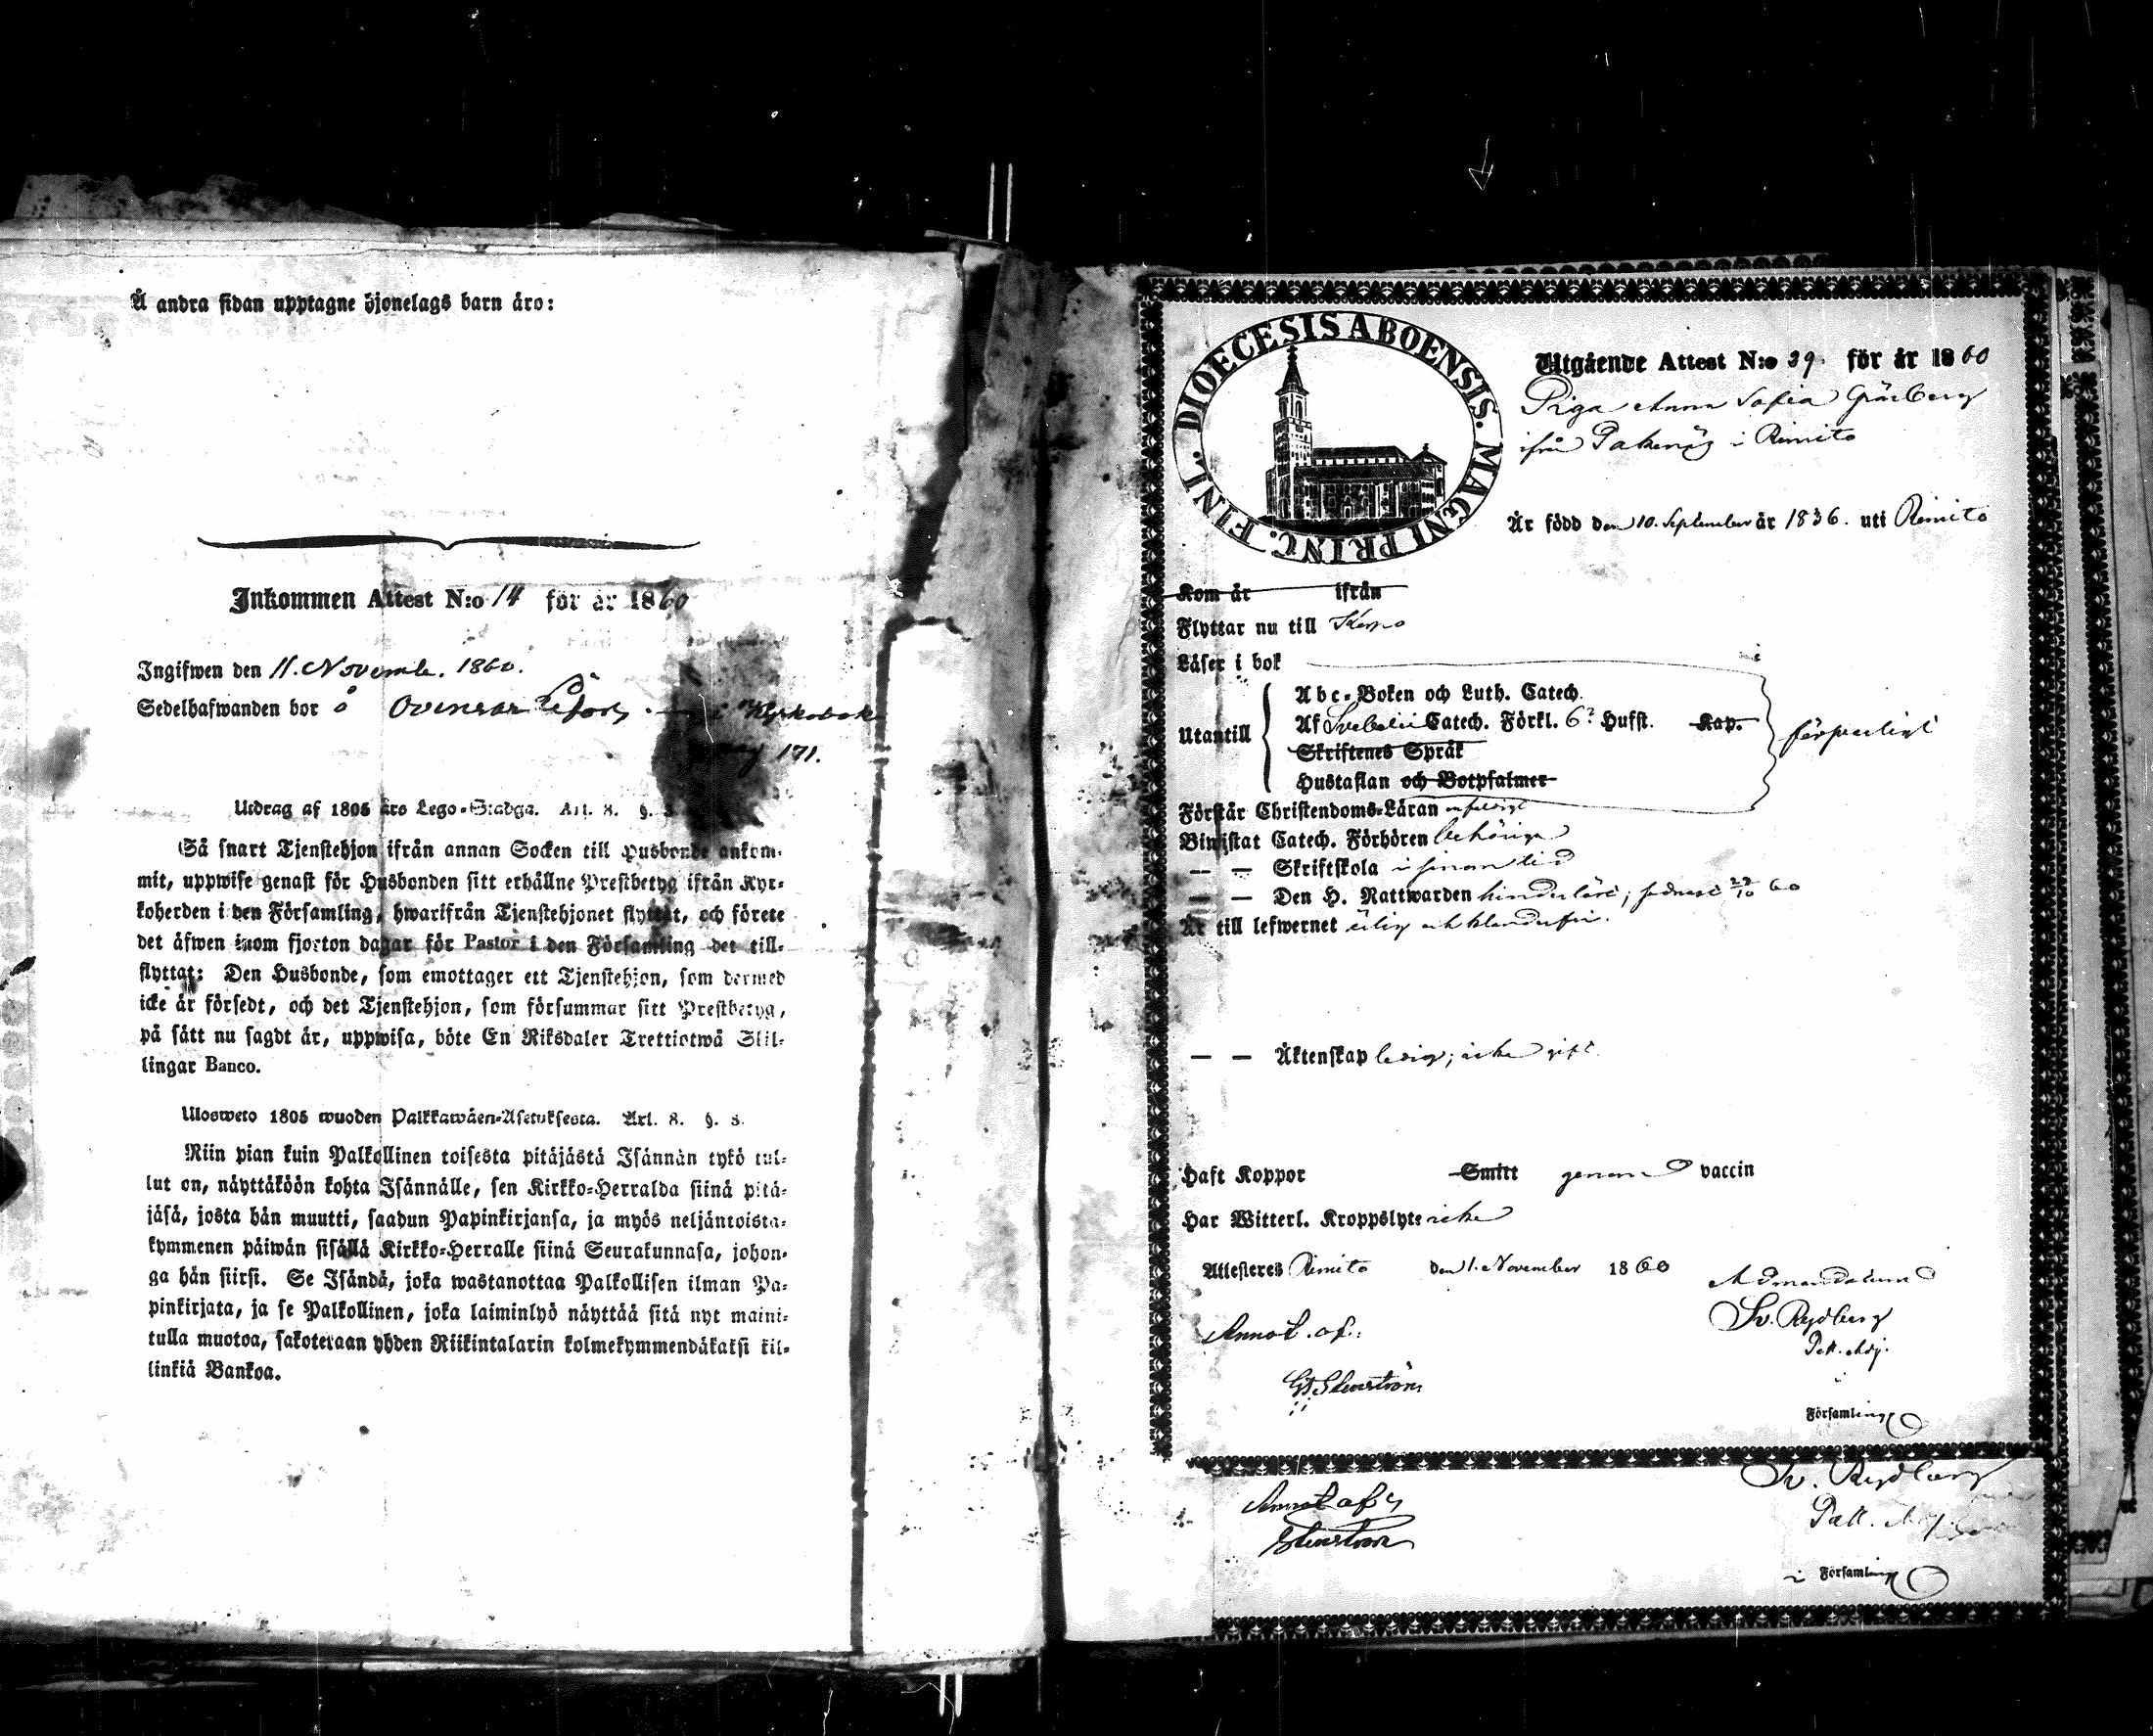 Å andra sidan upptagne hjonelags barn äro:
Inkommen Attest N:o 14 för år 1860
Ingifwen den 11. Novemb. 1860.
Sedelhafwanden bor å i Kyrkobok
pag 171.
Utdrag af 1805 års Lego-Stadga. Art. 8. §.
Så snart Tjenstehjon ifrån annan Socken till Husbonde ankom-
mit, uppwise genast för Husbonden sitt erhållne Prestbetyg ifrån Kyr-
koherden i den Församling, hwarifrån Tjenstehjonet flyttat, och förete
det äfwen inom fjorton dagar för Pastor i den Församling det till-
flyttat: Den Husbonde, som emottager ett Tjenstehjon, som dermed
icke är försedt, och det Tjenstehjon, som försummar sitt Prestbetyg,
på sätt nu sagdt är, uppwisa, böte En Riksdaler Trettiotwå Skil-
lingar Banco.
Ulosweto 1805 wuoden Palkkawäen-Asetuksesta. Art. 8. §. 3.
Niin pian kuin Palkollinen toisesta pitäjästä Isännän tykö tul-
lut on, näyttäköön kohta Isännälle, sen Kirkko-Herralda siinä pitä-
jäsä, josta hän muutti, saadun Papinkirjansa, ja myös neljäntoista-
kymmenen päiwän sisällä Kirkko-Herralle siinä Seurakunnasa, johon-
ga hän siirsi. Se Isändä, joka wastanottaa Palkollisen ilman Pa-
pinkirjata, ja se Palkollinen, joka laiminlyö näyttää sitä nyt maini-
tulla muotoa, sakotetaan yhden Riikintalarin kolmekymmendäkaksi kil-
linkiä Bankoa.
DIOECESIS ABOENSIS. MAGNI PRINC. FINL.
Utgående Attest N:o 39. för år 1860
Piga Anna Sofia Gränberg
ifrån i Rimito
Är född den 10. September år 1836. uti Rimito
Kom år ifrån
Flyttar nu till Korpo
Läser i bok
Utantill
Abc-Boken och Luth. Catech.
Af Svebelii Catech. Förkl. 6 Hufst. Kap.
Skriftenes Språk
Hustaflan och Botpsalmer
försvarligt
Förstår Christendoms-Läran
Biwistat Catech. Förhören behörigen
— — Skriftskola i sinom tid
— — Den H. Nattwarden hinderlöst; sednast 22/10 60
Är till lefwernet ärlig och klanderfri.
— — Äktenskap ledig; icke gift.
Haft Koppor Smitt genom vaccin
Har Witterl. Kroppslyte icke
Attesteras Rimito den 1. November 1860
Ad mandatum
Sv. Rydberg
Past. Adj.
Annot. af:
Församling
Sv. Rydberg
Annot af
Past.
i Församling